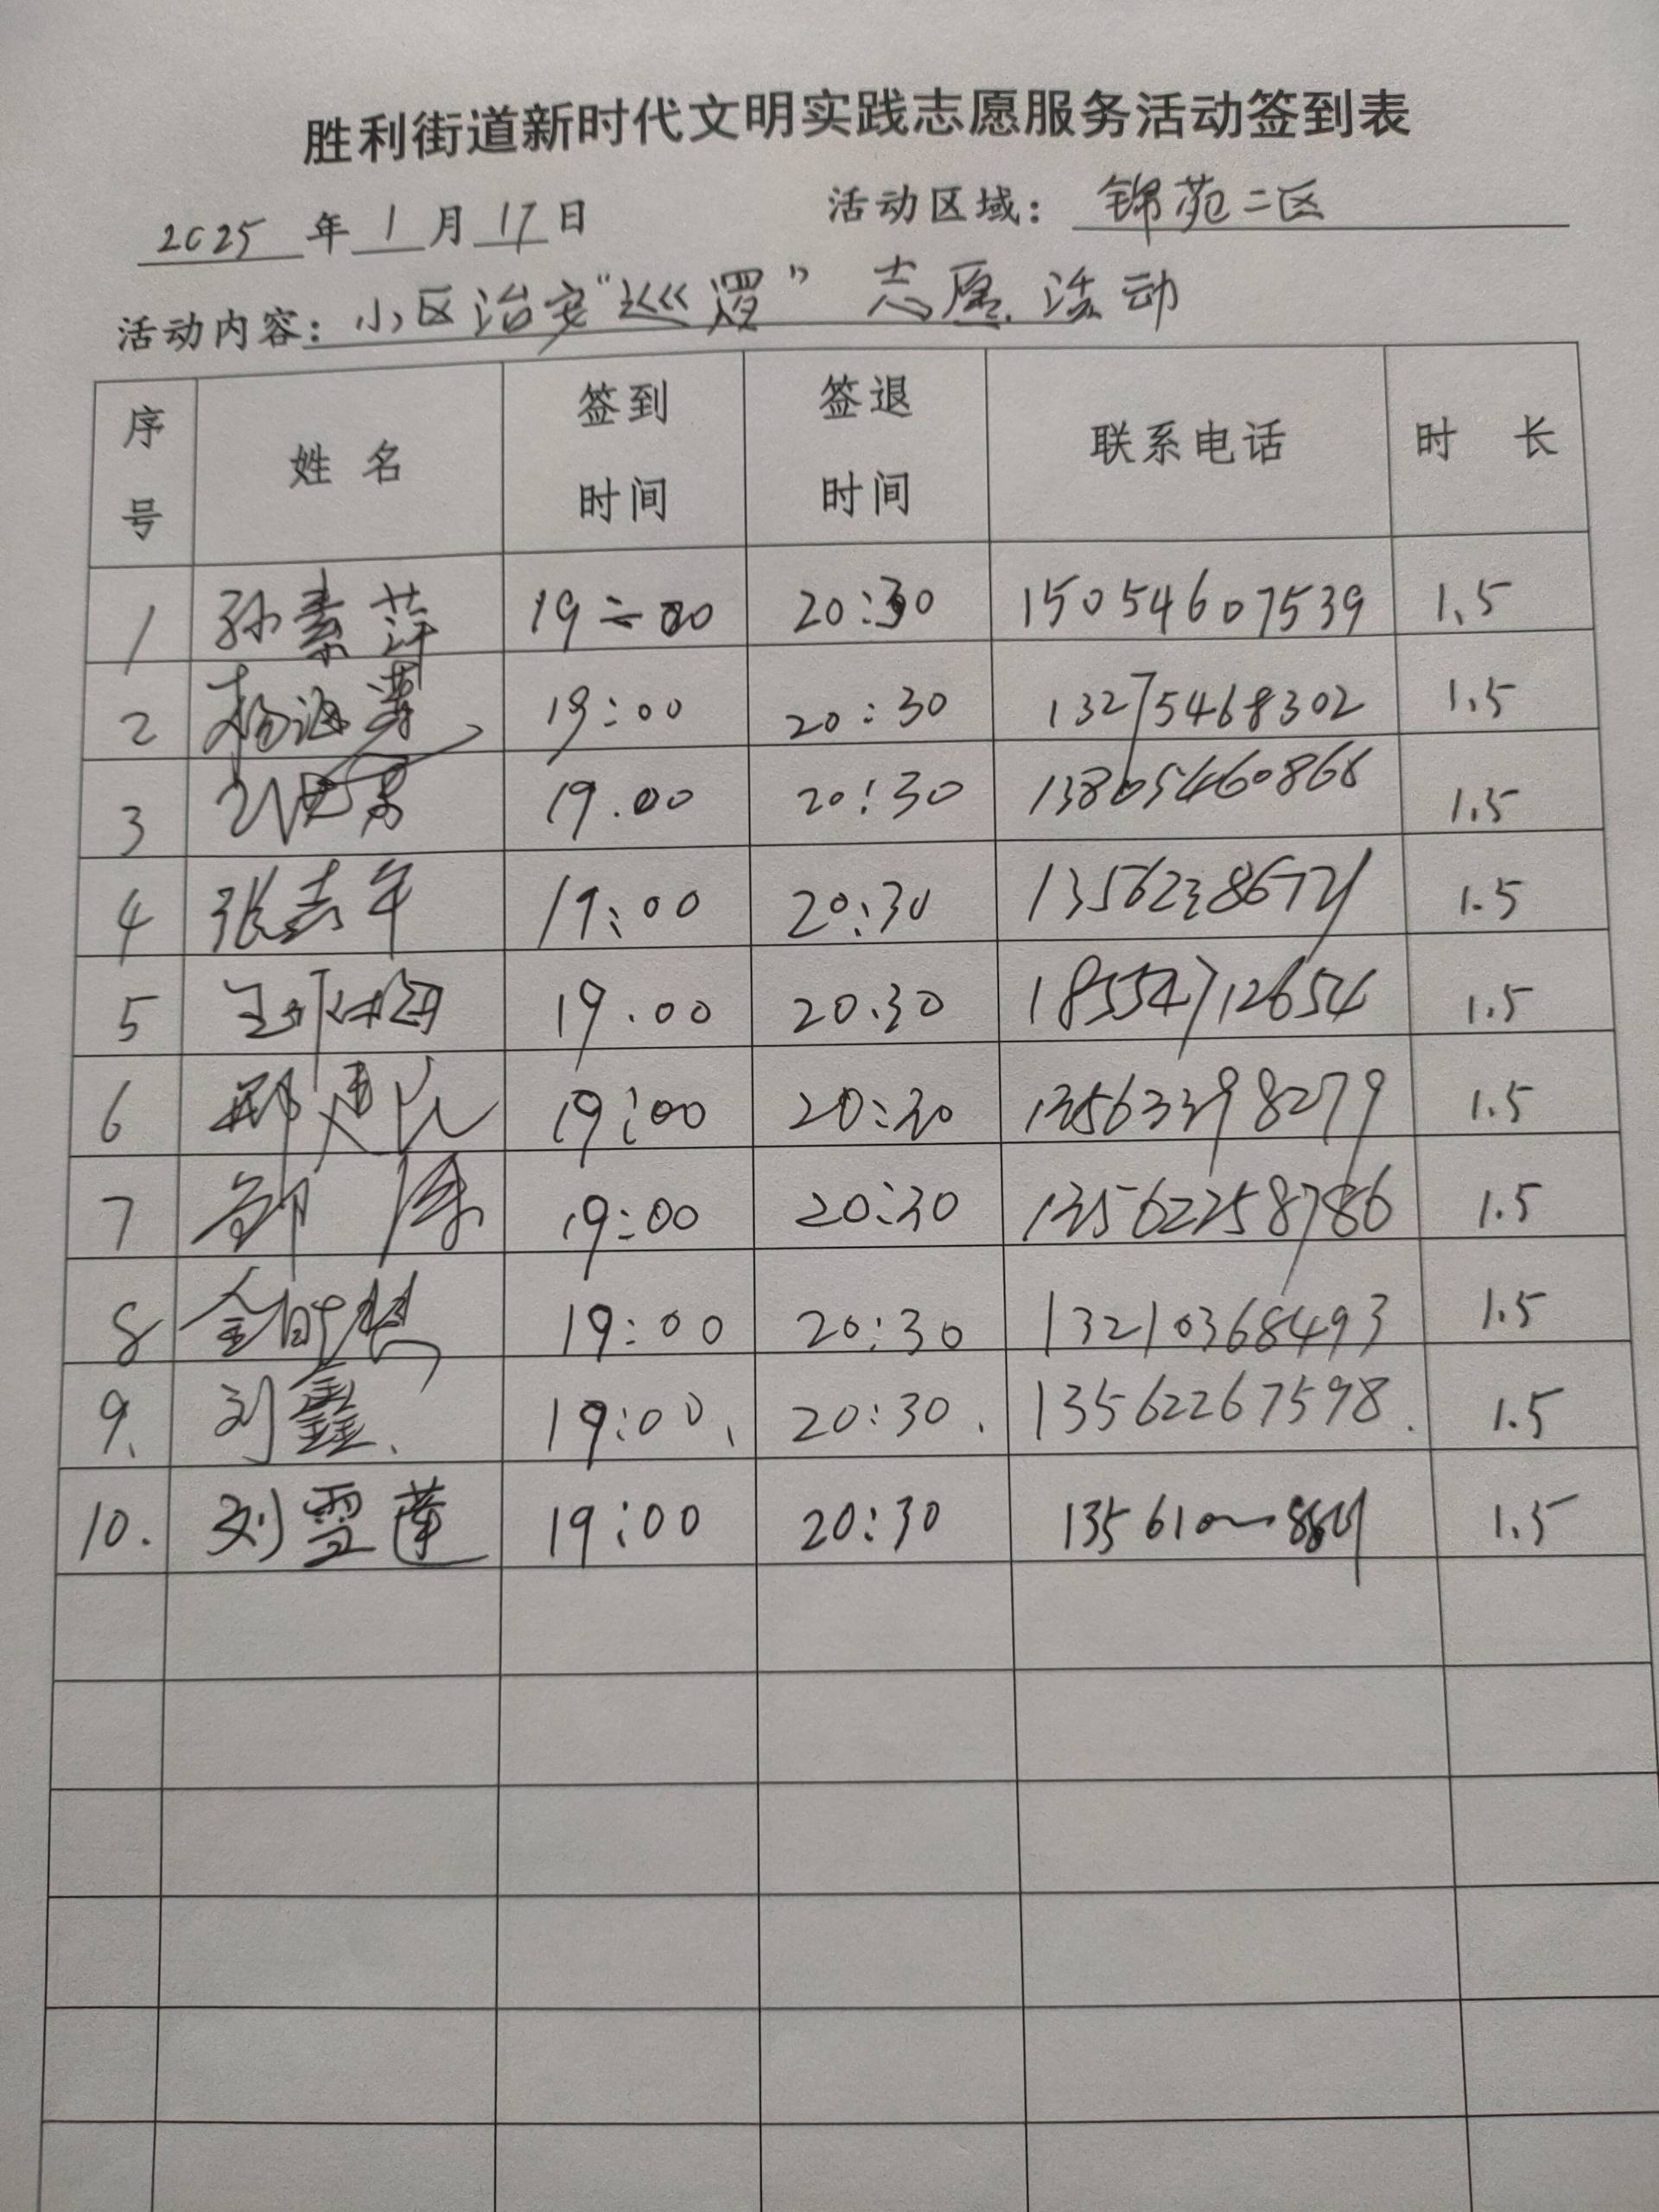 胜利街道新时代文明实践志愿服务活动签到表
2025年1月17日 活动区域：锦苑二区
活动内容：小区治安“巡逻”志愿活动
序号 姓名 签到时间 签退时间 联系电话 时长
1 孙素萍 19:00 20:30 15054607539 1.5
2 杨海 19:00 20:30 13275468302 1.5
3 19.00 20:30 13805460868 1.5
4 张吉年 19:00 20:30 13562386721 1.5
5 19.00 20.30 18554712654 1.5
6 建 19:00 20:30 13563398279 1.5
7 19:00 20:30 13562258786 1.5
8 19:00 20:30 13210368493 1.5
9、 刘鑫、 19:00、 20:30. 13562267598. 1.5
10. 刘雪莲 19:00 20:30 1.5